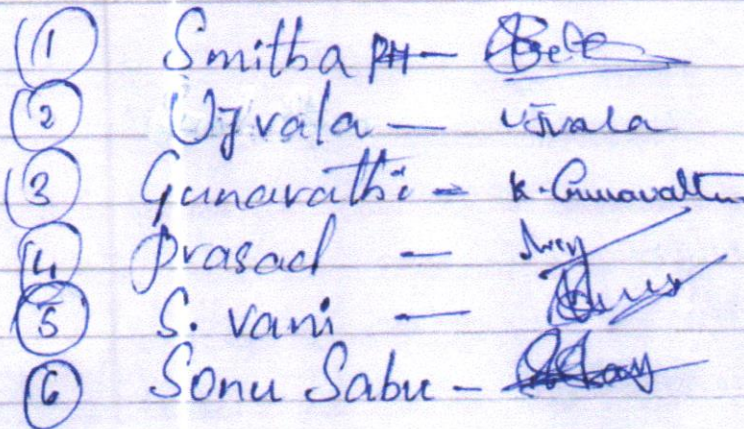 ① Smitha PH -
② Ujvala - Ujvala
③ Gunavathi - K. Gunavathi
④ Prasad -
⑤ S. Vani -
⑥ Sonu Sabu -